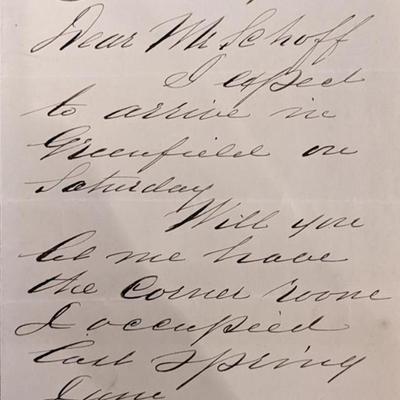 Dear Mr Schoff
I expect
to arrive in
Greenfield on
Saturday
Will you
let me have
the corner room
I occupied
last spring
I am